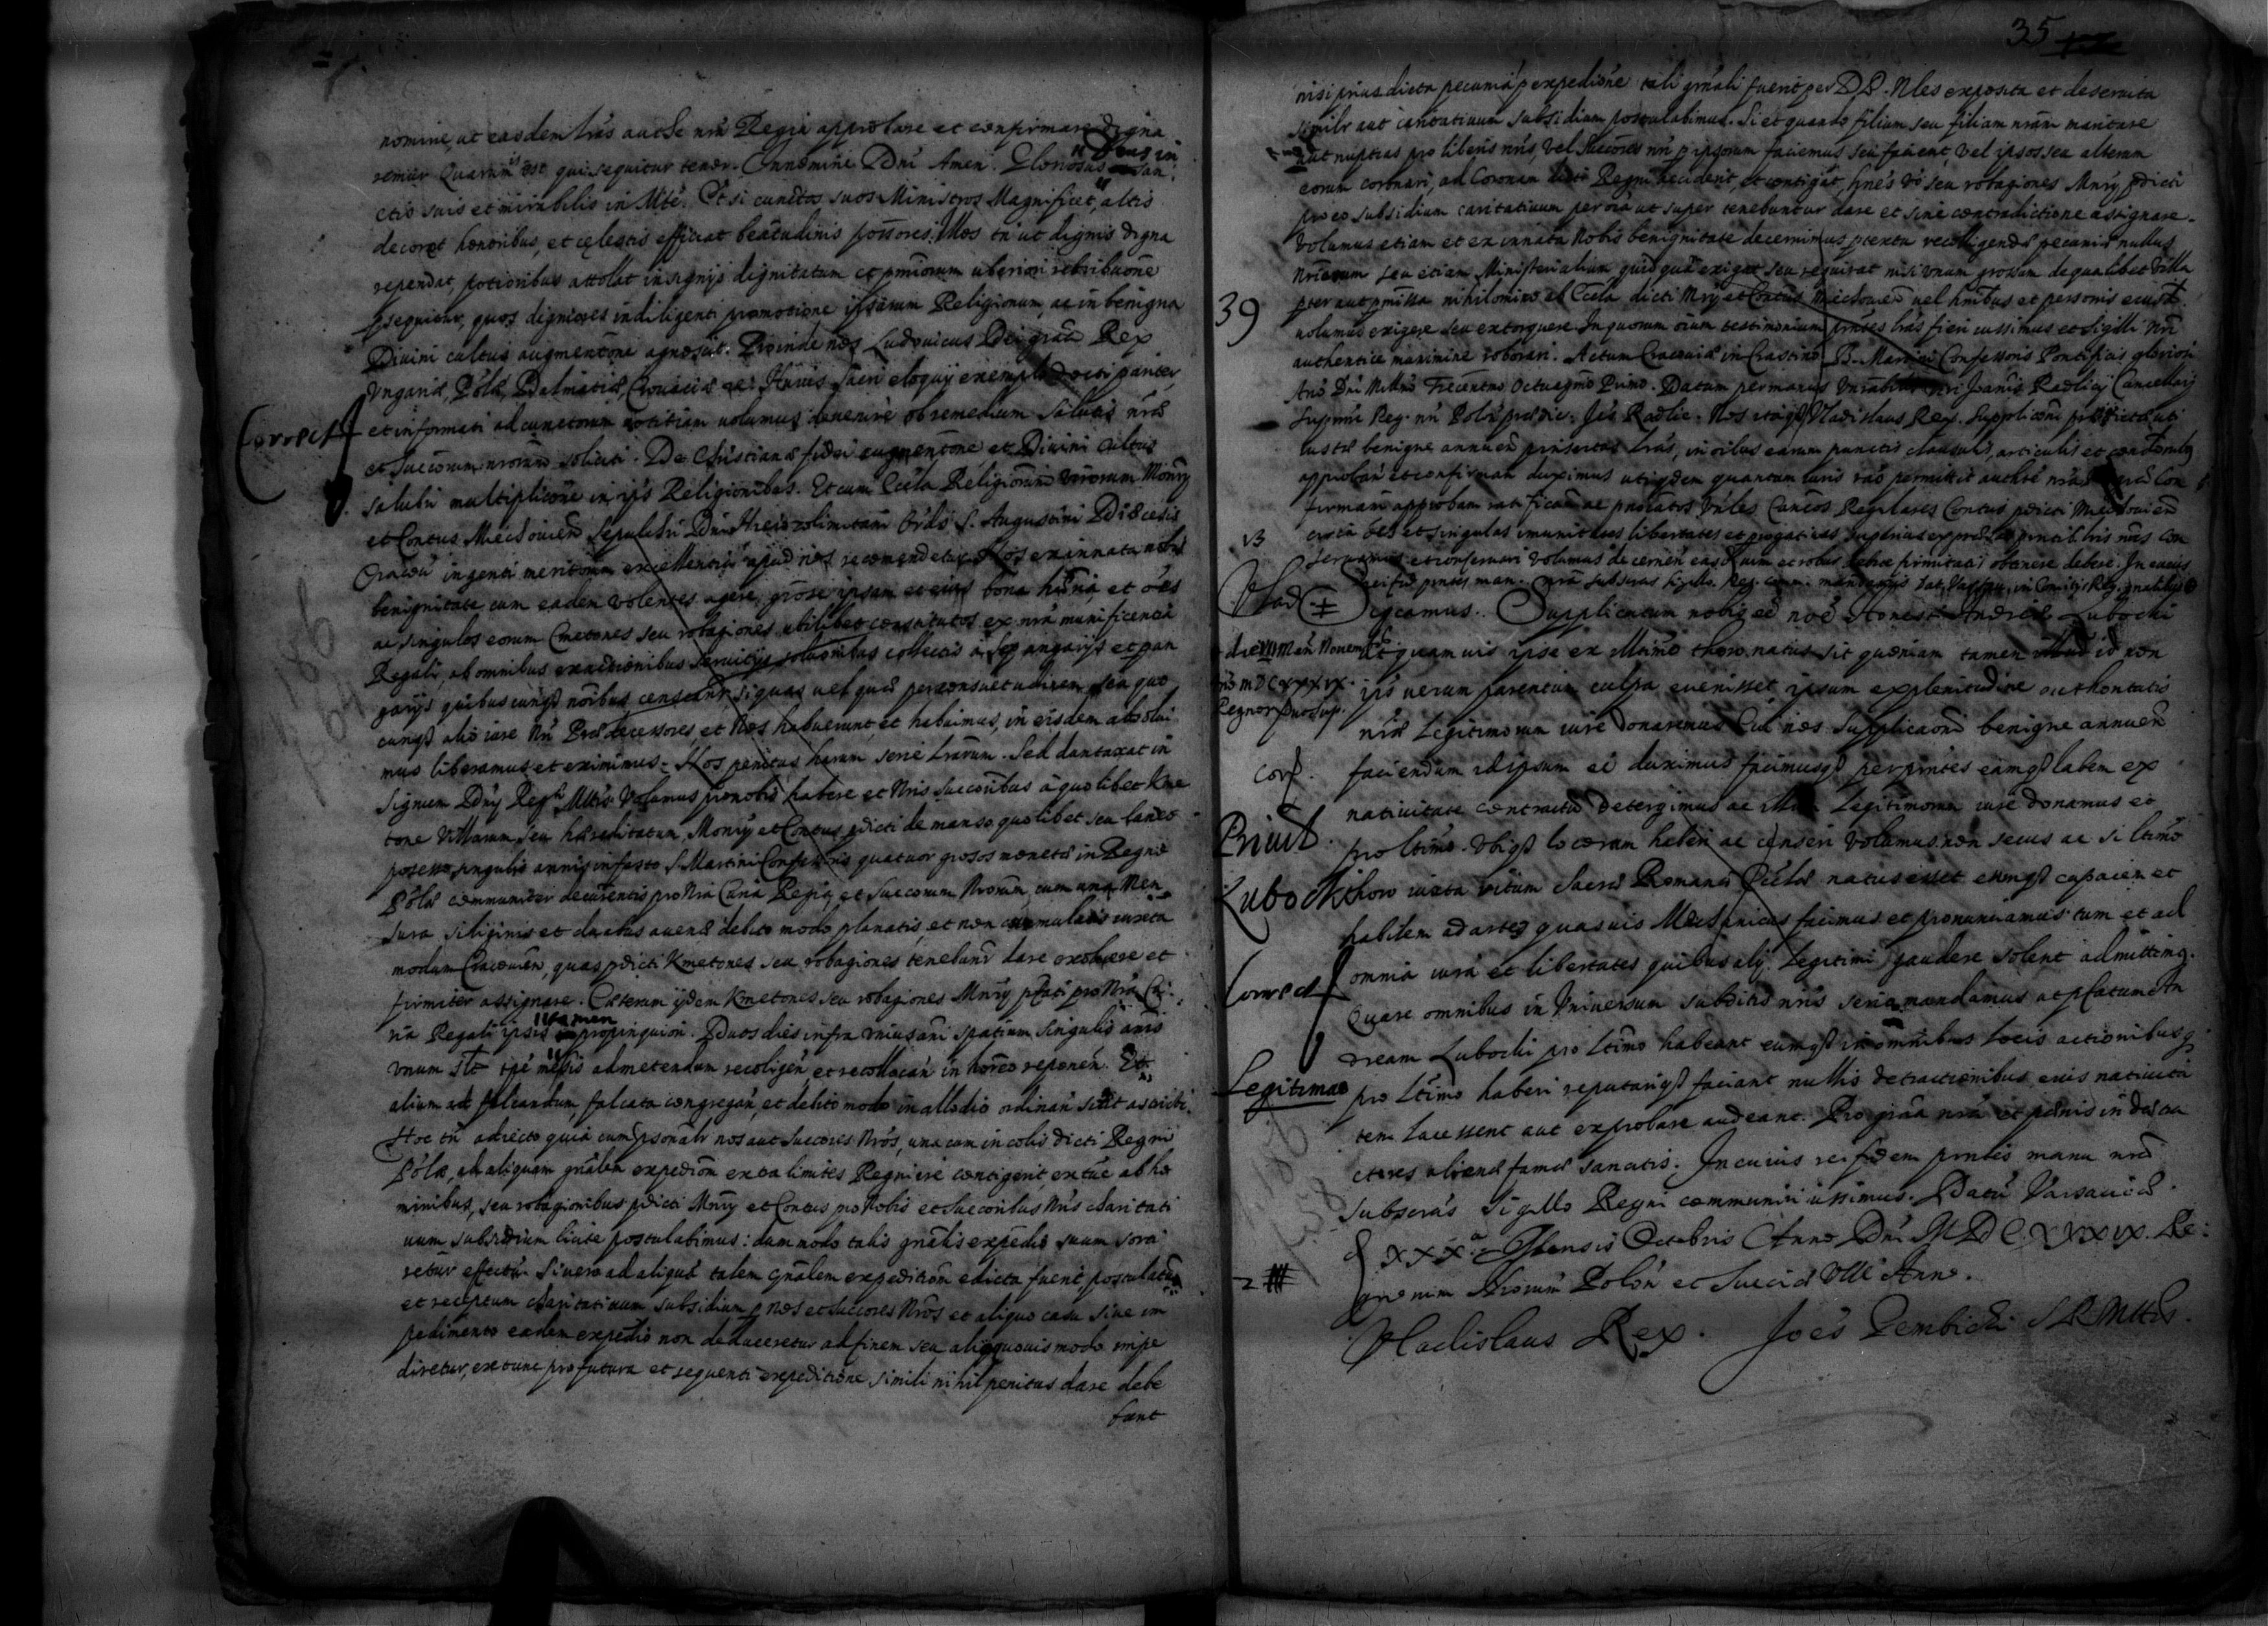 nomine, ut easdem lrãs autte nrã Regia approbare et confirmare digna
remur Quarum est qui sequitur tenor. Innomine Dni Amen. Gloriosus Deus in san
ctis suis et mirabilis in Mte. Et si cunctos suos Ministros Magnificet, altis
decoret honoribus, et cęlestis efficiat beatudinis possores. Illos tñ ut dignis digna
rependat, potioribus attollat insignijs dignitatum et pmiorum uberiori retribuone
psequitur, quos digniores indiligenti promotione ipsarum Religionum, ac in benigna
Divini cultus augmentone agnoscit. Proinde nos Ludovicus Dei grãa Rex
Vngariæ, Polæ, Dalmatiæ, Crouaciæ etc. Huius sacri eloquij exemplo docti pariter
Correct
et informati ad cunctorum notitiam uolumus deuenire ob remedium salutis nræ
et Succorum nrorum soliciti. De Christianæ fidei augmentone et Divini cultus
salubri multiplicone in ips Religionibus. Et cum Eccla Religiosorum virorum Monrij
et Contus Miechouien Sepulchri Dni Hierozolimitani Ordis S. Augustini Dioecesis
Cracou ingenti meritorum excellentia apud nos recomendetur. Nos ex innata nobis
benignitate cum eadem volentes agere, grose ipsam et eius bona hmnia et oes
ac singulos eorum Cmetones seu robagiones utilibet constitutos ex nrã munificentia
Regali, ab omnibus exactionibus seruitijs solutionibus collectis angarijs et pan
garijs quibuscunq noibus censeantr, si quas uel quæ perconsuetudinem seu quo
cunq alio iure Nri Prædecessores et Nos habuerunt et habuimus, in eisdem absolui
mus liberamus et eximimus. Hos penitus harum serie lrarum. Sed dantaxat in
Signum Dnij Regij Mtis Volumus pronobis habere et Nris Succoribus a quolibet Kme
tone Villarum seu hæreditatum Monrij et Contus pdicti de manso quolibet seu laneo
possesso singulis annis in festo S. Martini Confessoris quatuor grosos monetæ in Regno
Polæ communiter decurrentis pro Nra Curia Regia, et Succorum Nrorum, cum una Men
sura siliginis et duabus auenæ debito modo planatis, et non cumulatis iuxta
modum Cracouien, quas pdicti Kmetones seu robagiones tenebuntr dare exoluere et
firmiter assignare. Cæterum ijdem Kmetones seu robagiones Mnrij pfati pro Nra Cu
ria Regali ipsis tamen propinquiori. Duos dies infra vnius ani spatium singulis anis
vnum slt tpe mesis admetendum recoligen et recollocan in horeo reponen. Et
alium ad falcandum, falcata congregan, et debito modo in allodio ordinan sint ascripti.
Hoc tñ adiecto quia cum psonalr nos aut Succores Nros, una cum incolis dicti Regni
Polæ, ad aliquam gñalem expedicom extra limites Regni ire contigerit extuc ab ho
minibus, seu robagionibus pdicti Mnrij et Contus pro Nobis et Succoribus Nris charitati
uum subsidium licite postulabimus: dummodo talis gñalis expedio suum sorti
retur effectum. Si uero ad aliquã talem gñalem expeditiom edicta fuerit, postulatum
et receptum charitatiuum subsidium p nos et succores Nros et aliquo casu siue im
pedimento eadem expedio non deduceretur ad finem seu aliqquouis modo impe
diretur, extunc pro futura et sequenti expeditione simili nihil penitus dare debe
bunt
35
nisi prius dicta pecunia p expedione tali gñali fuerit per D D. Nles exposita et deseruita
similr aut caritatiuum subsidium postulabimus. Si et quando filium seu filiam nram maritare
aut nuptias pro liberis nris, vel Succores nri p ipsorum faciemus seu facient vel ipsos seu alterum
eorum coronari, ad Coronam dicti Regni accidenit, et contigat, hnes vo seu robagiones Mnrij pdicti
pro eo subsidium caritatiuum per oia ut super tenebuntur dare et sine contradictione assignare.
Volumus etiam et ex innata Nobis benignitate decernimus ptextu recolligendæ pecuniæ nullus
Nrorum seu etiam Ministerialium quidquã exigat seu requirat nisi vnum grossum de qualibet Villa
39
pter aut pmissa nihilominus ab Eccla dicti Mrij et Contus Miechouien uel hnibus et personis eiusd
nolumus exigere seu extorquere. In quorum oium testimonium pntes lrãs fieri iussimus et sigilli nri
authentice maximine roborari. Actum Cracouiæ in Crastino B. Martini Confessoris Pontificis gloriosi
Ano Dni Millmo Trecentmo Octuagmo Primo. Datum per manus Vnrabilis Joanis Radlicij Cancellarij
Supremi Reg. nri Polæ prædic. Jes Radlic. Nos itaq Vladislaus Rex. Suppliconi
iustæ benigne annuen pinsertas lrãs, in oibus earum punctis clausulis, articulis et conditionibs
approban et confirman duximus uti qdem quantum iuris rao permittit auctte nra Con
firmam approbam ratificam ac pnotatos Vnles Canocos Regulares Contus pdicti Miechouien
circa oes et singulas imunitates libertates et prorogatiuas superius expressas pntibs lris nris con
seruamus et conseruari volumus decernen eas uim et robur debitæ firmitatis obtinere debere. In cuius
rei fidem pntes man. nra subscras sigillo Reg. comm. mandauimus Dat. Varsau. in Comitijs Reg. gnalibus
Vlad: Significamus. Supplicatum nobis ee noe Honesti Andreæ Lubocki
die VII Men Nouemb
ut quamuis ipse ex illtimo thoro natus sit quoniam tamen illud id non
Ano MDCXXXIX.
ips uerum parentum culpa euenisset ipsum explenitudine authoritatis
Regnor
nræ Legitimorum iure donaremus Cui nos Supplicaoni benigne annuen
Corr.
faciendum id ipsum ei duximus facimusq per pntes eamq labem ex
nativitate contracta detergimus ac illum Legitimorum iure donamus et
Privil.
pro ltimo. Vbiq locorum haberi ac censeri Volumus non secus ac si ltimo
Lubocki
thoro iuxta ritum Sacræ Romanæ Eccleæ natus esset eumq capacem et
habilem ad artes quasuis Mechanicas facimus et pronunciamus: tum et ad
Correct
omnia iura et libertates quibus alij Legitimi gaudere solent admittimq.
Quare omnibus in Vniversum subditis nris serio mandamus ut pfatum An
dream Lubocki pro ltimo habeant eumq in omnibus locis actionibusq
Legitimao
pro Ltimo haberi reputariq faciant nullis detractionibus eius nativita
tem lacessent aut exprobare audeant. Pro grãa nrã et pænis in detra
ctores alienæ famæ sancitis. In cuius rei fidem pntes manu nrã
subscras Sigillo Regni communiri iussimus. Datũ Varsauiæ
XXXa Mensis Octobris Anno Dni MDCXXXIX. Re:
gnorum Nrorum Polon et Sueciæ VIII Anno.
Vladislaus Rex. Joes Gembicki S R Mttis.